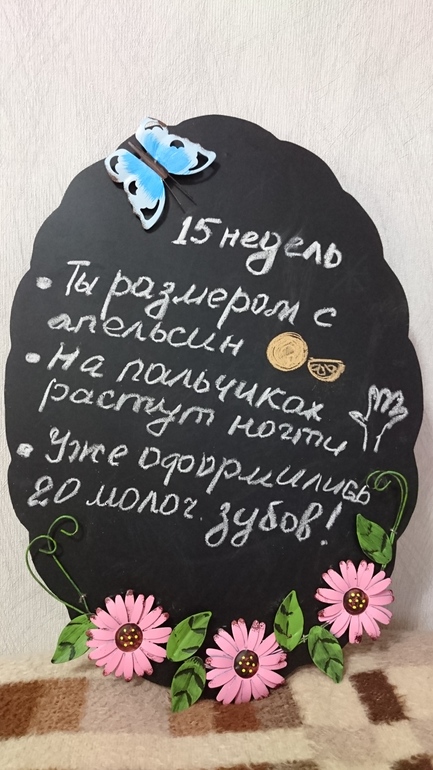 15 недель
• Ты размером с
апельсин
• На пальчиках
растут ногти
• Уже оформились
20 молоч. зубов!